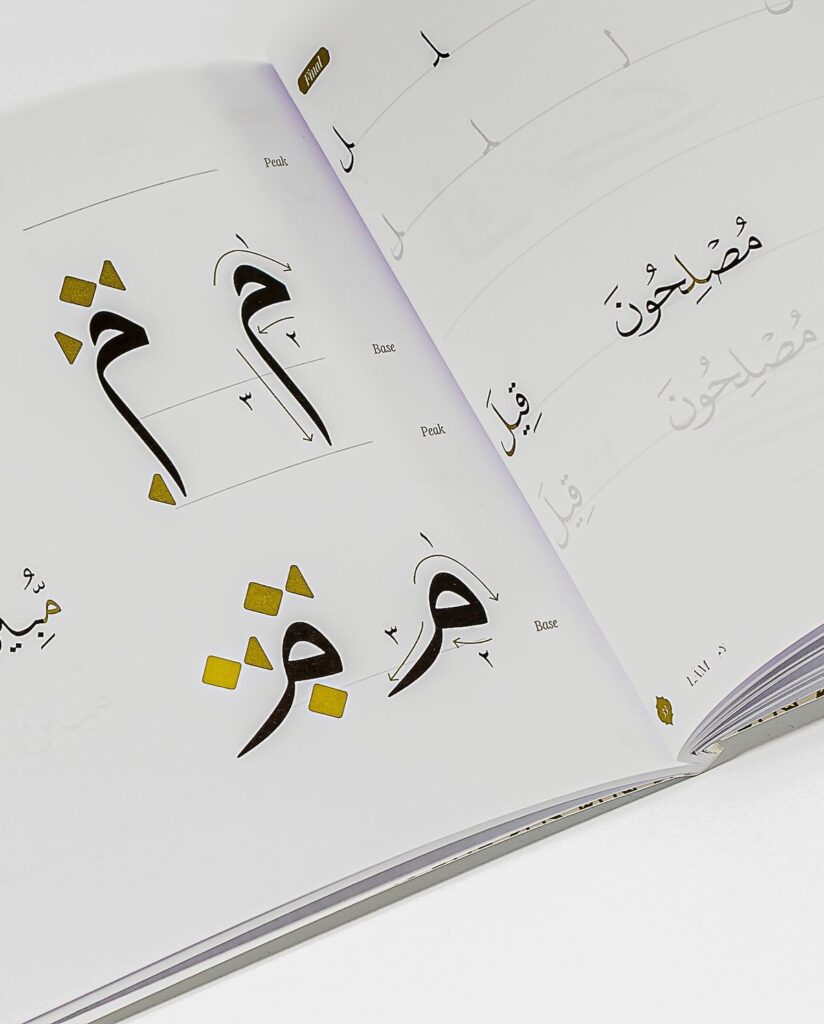 Peak
م م
١
٢
٣
Base
Peak
م م
١
٢
٣
Base
Final
ل ل
ل
ل ل
مُصْلِحُونَ
مُصْلِحُونَ
قِيلَ
قِيلَ
LAM لام